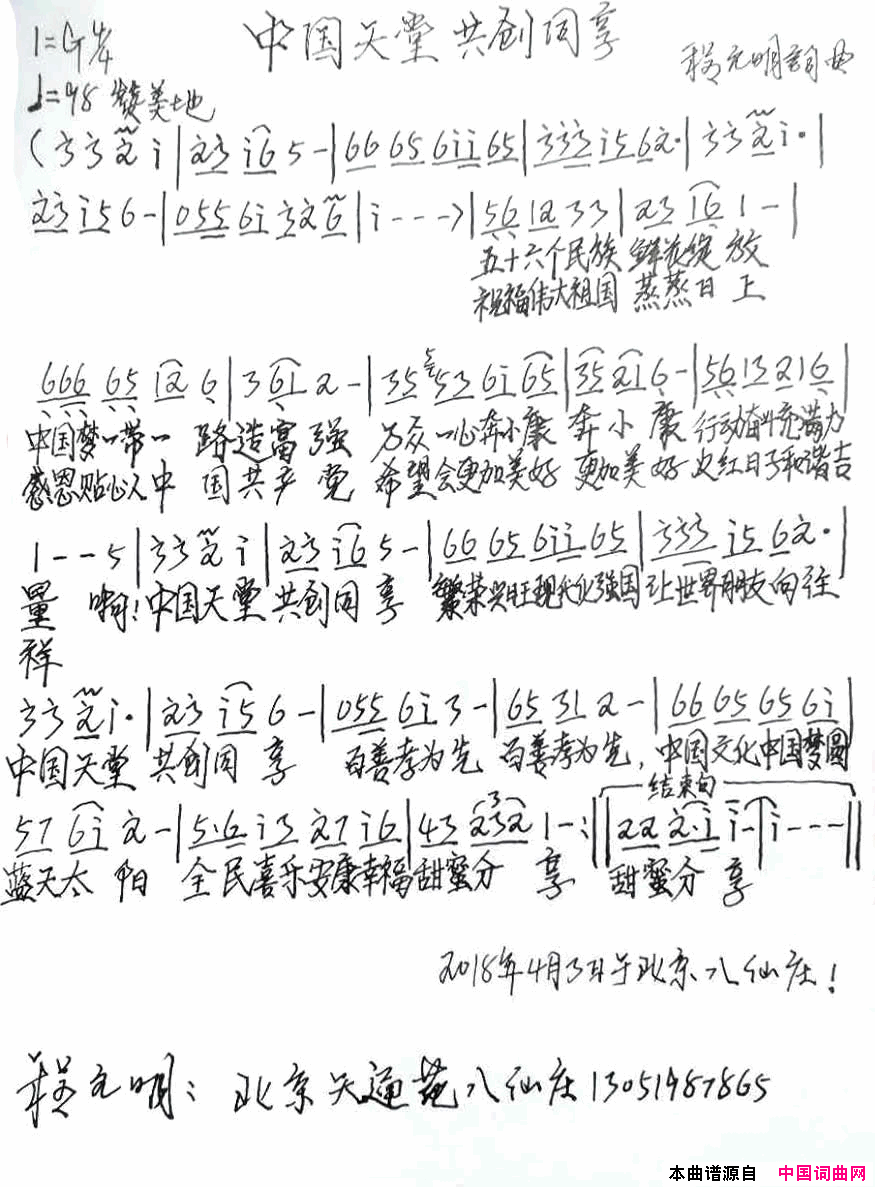 中国天堂共创同享
1=G 4/4
程元明词曲
♩=98 赞美地
(3 3 2 i | 23 i6 5 - | 66 65 6ii 65 | 333 i5 62· | 3 3 2 i· |
23 i5 6 - | 055 6i 32 6 | i - - - ) | 56 12 3 3 | 23 16 1 - |
五十六个民族 鲜花绽放
祝福伟大祖国 蒸蒸日上
666 65 12 6 | 3 61 2 - | 35 53 6i 65 | 35 21 6 - | 56 13 21 6 |
中国梦一带一 路造富强 万众一心奔小康 奔小康 行动奋斗充满力
感恩贴心人中 国共产党 希望会更加美好 更加美好 火红日子和谐吉
1 - - 5 | 3 3 2 i | 23 i6 5 - | 66 65 6ii 65 | 333 i5 62· |
量 啊!中国天堂 共创同享 繁荣兴旺现代化强国 让世界朋友向往
祥
3 3 2 i· | 23 i5 6 - | 055 6i 3 - | 65 31 2 - | 66 65 65 6i |
中国天堂 共创同享 百善孝为先 百善孝为先, 中国文化中国梦圆
结束句
57 6i 2 - | 5·6 i3 27 i6 | 43 232 1 - :‖ 22 2·i i - | i - - - ‖
蓝天太阳 全民喜乐安康幸福 甜蜜分享 甜蜜分享
2018年4月3日于北京八仙庄!
程元明: 北京天通苑八仙庄13051987865
本曲谱源自 中国词曲网